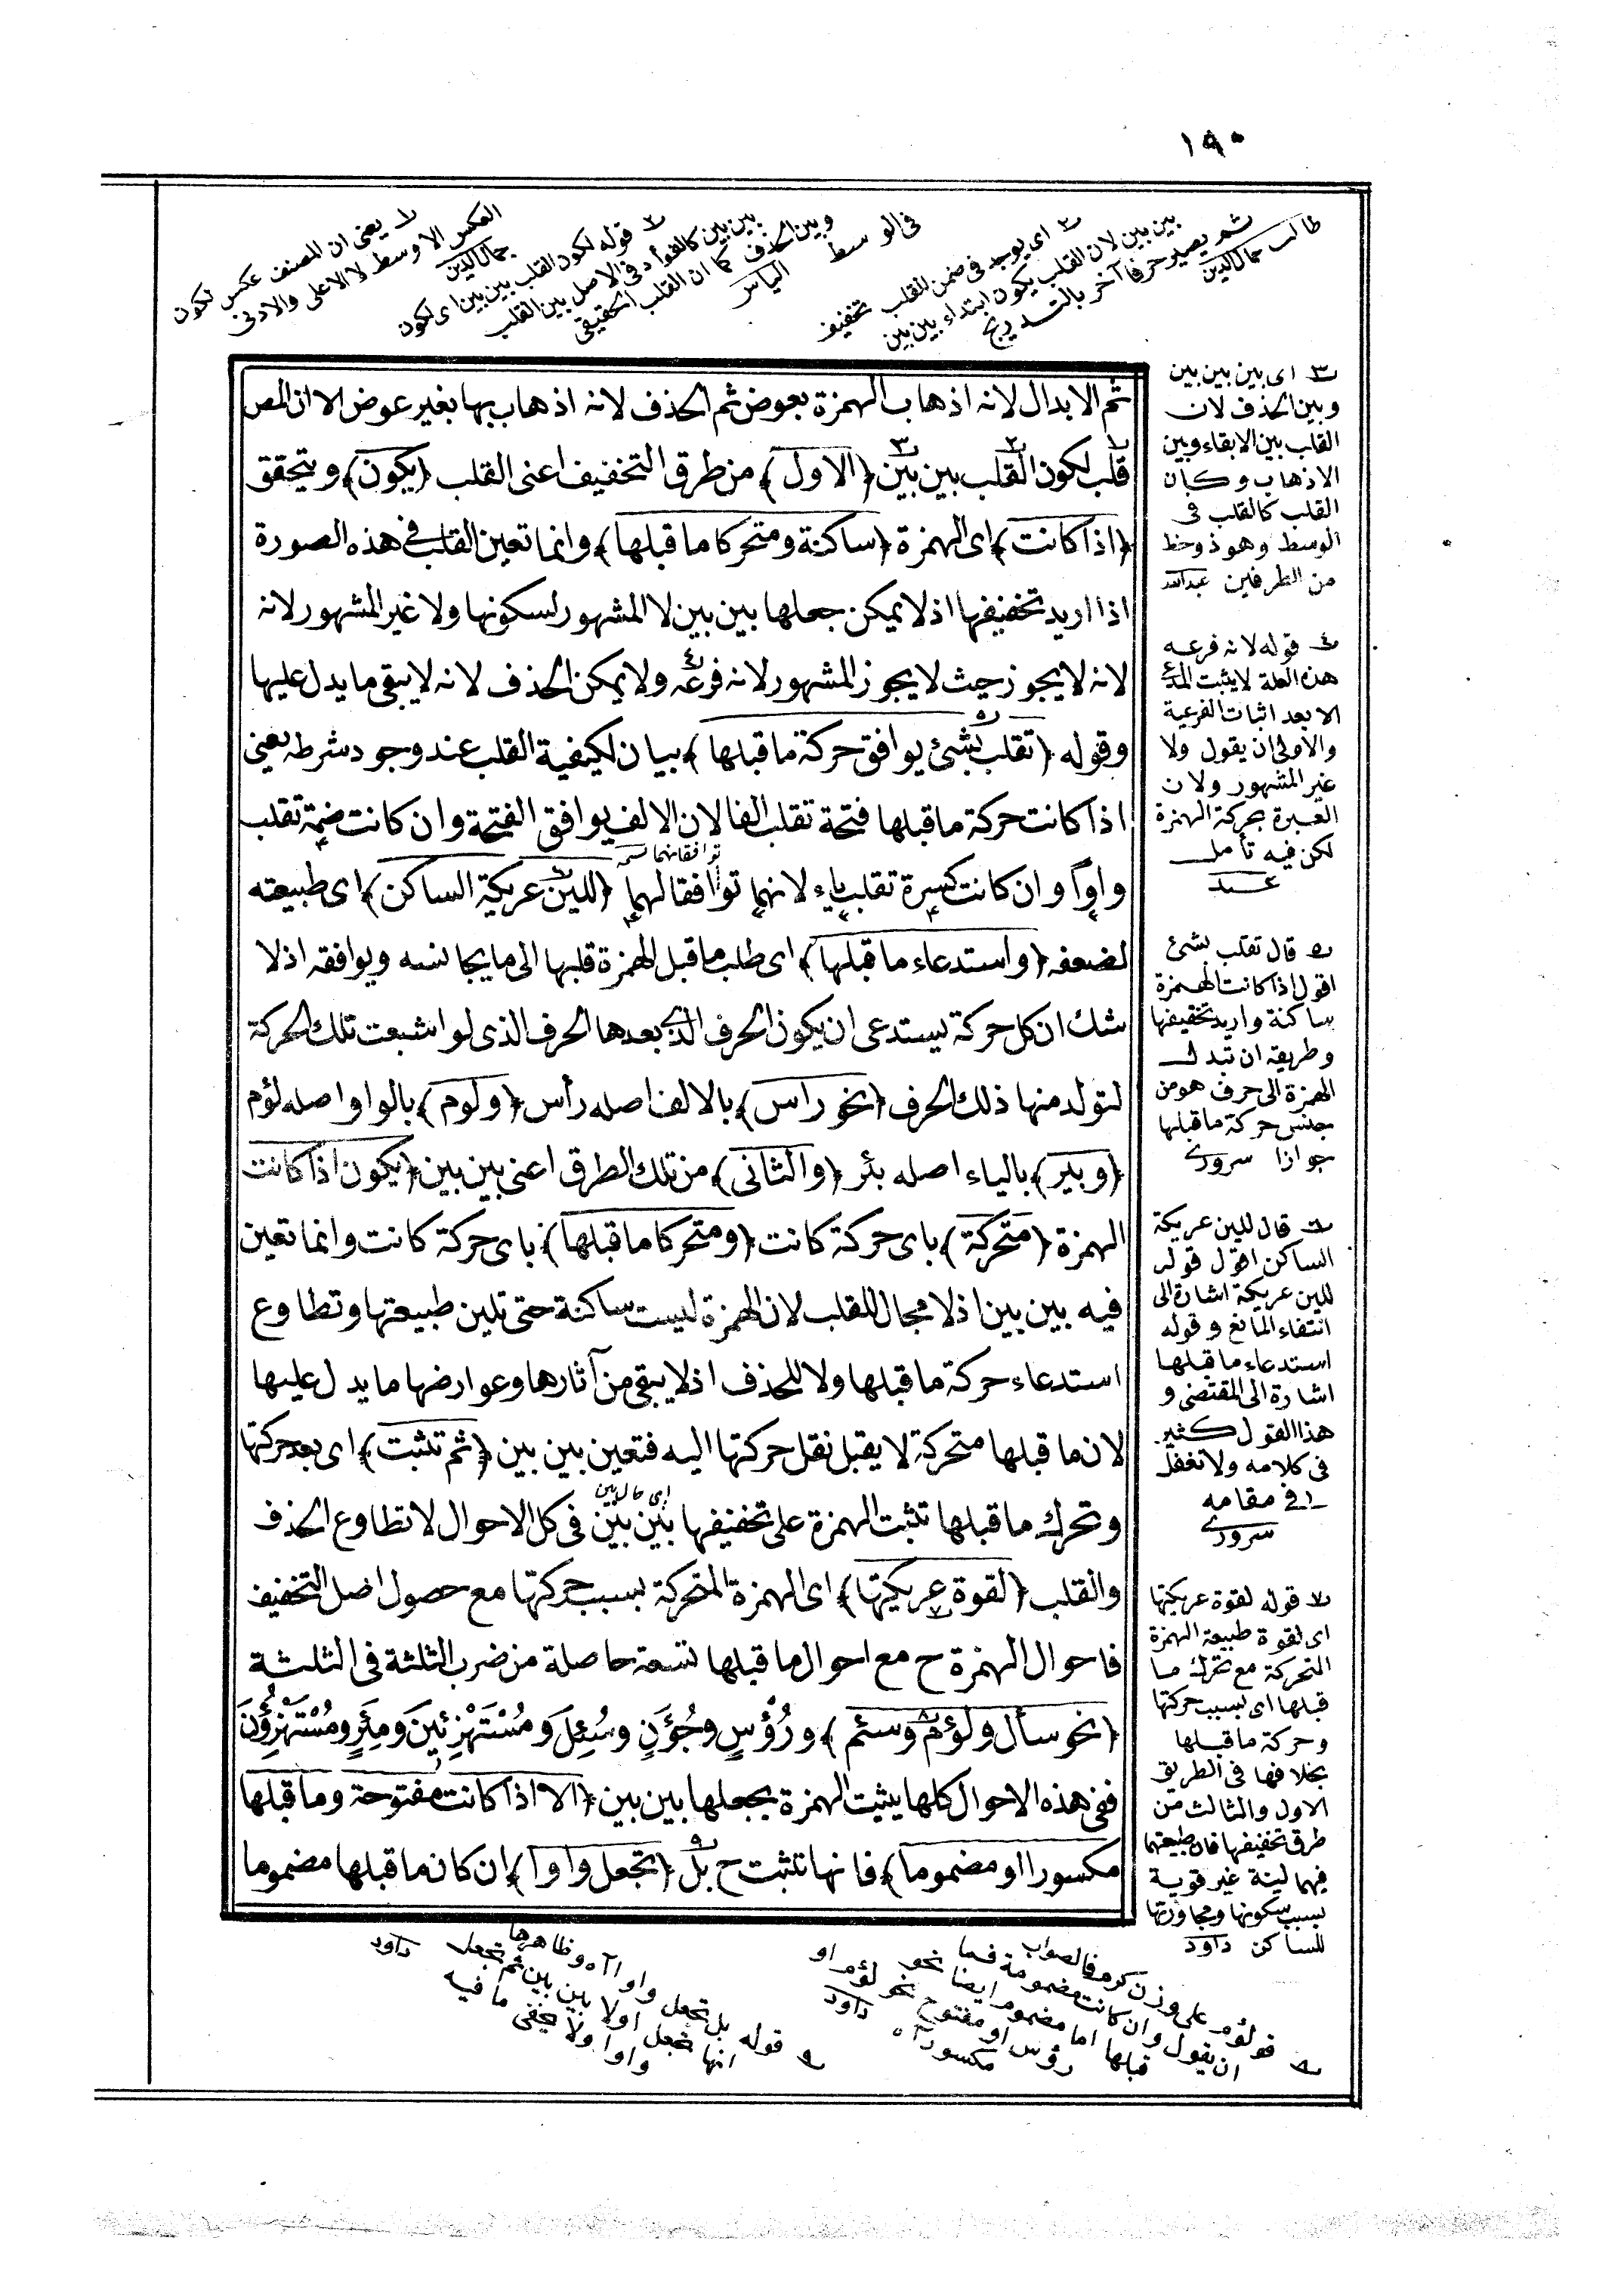 ١٩٠
١ يعنى ان المصنف عكس لكون
العكس الاوسط لا الاعلى والادنى
جمال الدين
٢ قوله لكون القلب بين بين اى لكون
بين بين كالفؤاد فى الاصل بين القلب
وبين الحذف كما ان القلب الحقيقى
فى الوسط الياس
٣ اى يوجد فى ضمن القلب تخفيف
بين بين لان القلب يكون ابتداء بين بين
ثم يصير حرفا آخر بالتدريج
طالب جمال الدين
ثم الابدال لانه اذهاب الهمزة بعوض ثم الحذف لانه اذهاب بها بغير عوض الا ان المص
قلب لكون القلب بين بين ﴿الاول﴾ من طرق التخفيف اعنى القلب ﴿يكون﴾ ويتحقق
﴿اذا كانت﴾ اى الهمزة ﴿ساكنة ومتحركا ما قبلها﴾ وانما تعين القلب فى هذه الصورة
اذا اريد تخفيفها اذ لا يمكن جعلها بين بين لا المشهور لسكونها ولا غير المشهور لانه
لانه لا يجوز حيث لا يجوز المشهور لانه فرعه ولا يمكن الحذف لانه لا يبقى ما يدل عليها
وقوله ﴿تقلب بشئ يوافق حركة ما قبلها﴾ بيان لكيفية القلب عند وجود شرطه يعنى
اذا كانت حركة ما قبلها فتحة تقلب الفا لان الالف يوافق الفتحة وان كانت ضمة تقلب
توافقانهما نسخه
واوا وان كانت كسرة تقلب ياء لانهما توافقا لهما ﴿للين عريكة الساكن﴾ اى طبيعته
لضعفه ﴿واستدعاء ما قبلها﴾ اى طلب ما قبل الهمزة قلبها الى ما يجانسه ويوافقه اذ لا
شك ان كل حركة يستدعى ان يكون الحرف الذى بعدها الحرف الذى لو اشبعت تلك الحركة
لتولد منها ذلك الحرف ﴿نحو راس﴾ بالالف اصله رأس ﴿ولوم﴾ بالواو اصله لؤم
﴿وبير﴾ بالياء اصله بئر ﴿والثانى﴾ من تلك الطرق اعنى بين بين ﴿يكون اذا كانت
الهمزة ﴿متحركة﴾ باى حركة كانت ﴿ومتحركا ما قبلها﴾ باى حركة كانت وانما تعين
فيه بين بين اذ لا مجال للقلب لان الهمزة ليست ساكنة حتى تلين طبيعتها وتطاوع
استدعاء حركة ما قبلها ولا للحذف اذ لا يبقى من آثارها وعوارضها ما يدل عليها
لان ما قبلها متحركة لا يقبل نقل حركتها اليه فتعين بين بين ﴿ثم تثبت﴾ اى بعد حركتها
اى حال بين
وتحرك ما قبلها تثبت الهمزة على تخفيفها بين بين فى كل الاحوال لا تطاوع الحذف
والقلب ﴿لقوة عريكتها﴾ اى الهمزة المتحركة بسبب حركتها مع حصول اصل التخفيف
فاحوال الهمزة ح مع احوال ما قبلها تسعة حاصلة من ضرب الثلثة فى الثلثة
﴿نحو سأل ولؤم وسئم﴾ ورُؤُسٍ وجُؤَنٍ وسُئِلَ ومُسْتَهْزِئِينَ ومِئَرٍ ومُسْتَهْزِؤُنَ
ففى هذه الاحوال كلها يثبت الهمزة بجعلها بين بين ﴿الا اذا كانت مفتوحة وما قبلها
مكسورا او مضموما﴾ فانها تثبت ح بل ﴿تجعل واوا﴾ ان كان ما قبلها مضموما
٣ اى بين بين بين
وبين الحذف لان
القلب بين الابقاء وبين
الاذهاب وكان
القلب كالقلب فى
الوسط وهو ذو حظ
من الطرفين عبدالله
٤ قوله لانه فرعه
هذه العلة لا يثبت المدعى
الا بعد اثبات الفرعية
والاولى ان يقول ولا
غير المشهور ولان
العبرة بحركة الهمزة
لكن فيه تأمل
عبد
٥ قال تقلب بشئ
اقول اذا كانت الهمزة
ساكنة واريد تخفيفها
وطريقه ان تبدل
الهمزة الى حرف هو من
جنس حركة ما قبلها
جوازا سرورى
٦ قال للين عريكة
الساكن اقول قوله
للين عريكة اشارة الى
انتفاء المانع وقوله
استدعاء ما قبلها
اشارة الى المقتضى و
هذا القول كثير
فى كلامه ولا تغفل
فى مقامه
سرورى
٧ قوله لقوة عريكتها
اى لقوة طبيعة الهمزة
المتحركة مع تحرك ما
قبلها اى بسبب حركتها
وحركة ما قبلها
بخلافها فى الطريق
الاول والثالث من
طرق تخفيفها فان طبيعتها
فيهما لينة غير قوية
بسبب سكونها ومجاورتها
للساكن داود
٨ قولؤم على وزن كرم فالصواب
ان يقول وان كانت مضمومة فما
قبلها اما مضموم ايضا نحو
رؤس او مفتوح نحو لؤم او
مكسور آه داود
٩ قوله بل تجعل واوا آه وظاهرها
انها تجعل اولا بين بين ثم تجعل
واوا ولا يخفى ما فيه
داود